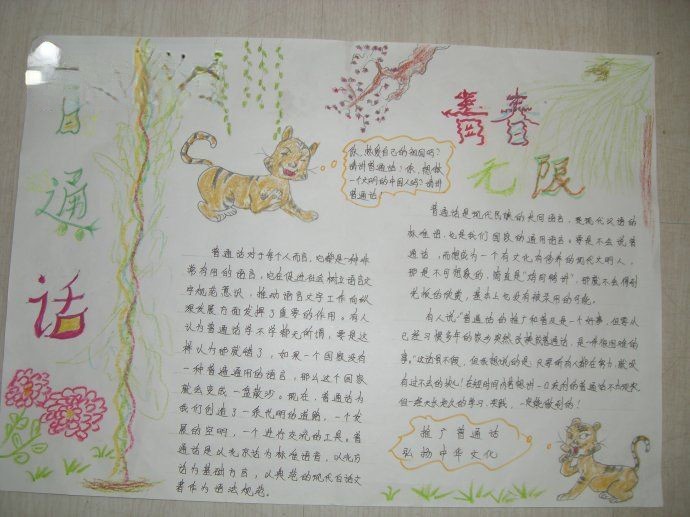 普
通
话
青春
无限
你，热爱自己的祖国吗？
请讲普通话！你，想做
一个文明的中国人吗？请讲
普通话！
普通话对于每个人而言，它都是一种非
常有用的语言，它在促进社会树立语言文
字规范意识，推动语言文字工作向纵
深发展方面发挥了重要的作用。有人
认为普通话学不学都无所谓，要是这
样认为那就错了，如果一个国家没有
一种普通通用的语言，那么这个国家
就会变成一盘散沙。现在，普通话为
我们创造了一条光明的道路，一个发
展的空间，一个进行交流的工具。普
通话是以北京话为标准语音，以北方
话为基础方言，以典范的现代白话文
著作为语法规范。
普通话是现代民族的共同语言，是现代汉语的
标准语，也是我们国家的通用语言。要是不会说普
通话，而想成为一个有文化有修养的现代文明人，
那是不可想象的，简直是
那就不会得到
有人说“普通话的推广和普及是一个好事，但要从
已经习惯多年的家乡突然改换成普通话，是一件很困难的
事。”这话有不假，但我想说的是，只要所有人都在努力，就没
有过不去的坎！在短时间内要能讲一口流利的普通话不太现实
但一定天长地久的学习、实践，一定能做到的！
推广普通话
弘扬中华文化